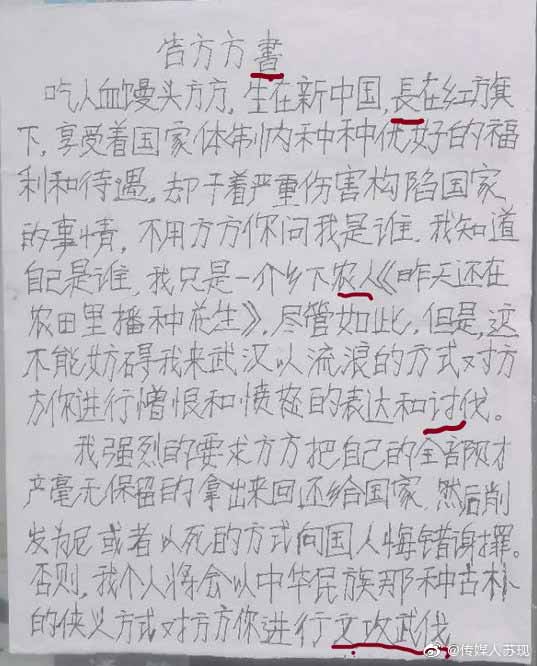 告方方書
吃人血馒头方方,生在新中国,長在红旗
下,享受着国家体制内种种优好的福
利和待遇,却干着严重伤害构陷国家
的事情,不用方方你问我是谁.我知道
自己是谁,我只是一介乡下农人《昨天还在
农田里播种花生》,尽管如此,但是,这
不能妨碍我来武汉以流浪的方式对方
方你进行憎恨和愤怒的表达和讨伐。
我强烈的要求方方把自己的全部财才
产毫无保留的拿出来回还给国家.然后削
发为尼或者以死的方式向国人悔错谢罪。
否则,我个人将会以中华民族那种古朴
的侠义方式对方方你进行文攻武伐
@传媒人苏现